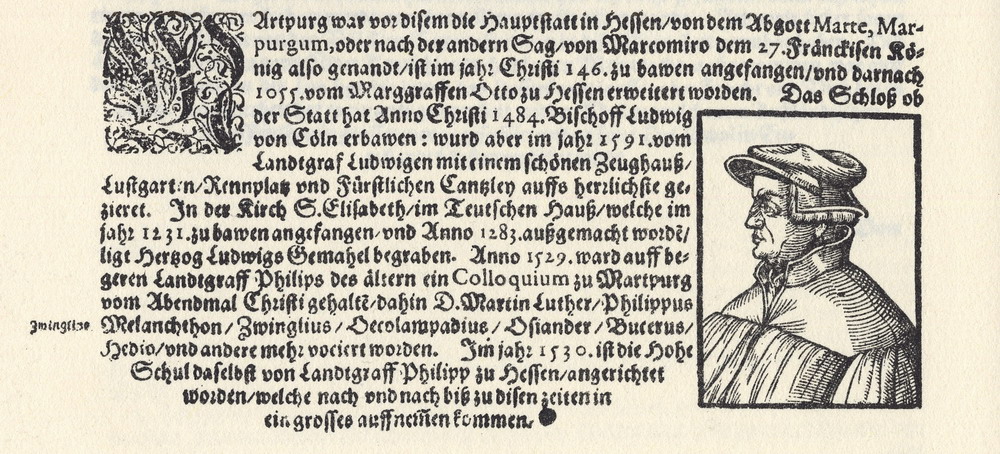 MArtpurg war vor disem die Hauptstatt in Hessen/von dem Abgott Marte, Mar-
purgum, oder nach der andern Sag/von Marcomiro dem 27. Fränckisen Kö-
nig also genandt/ist im jahr Christi 146. zu bawen angefangen/vnd darnach
1055. vom Marggraffen Otto zu Hessen erweitert worden. Das Schloß ob
der Statt hat Anno Christi 1484. Bischoff Ludwig
von Cöln erbawen: wurd aber im jahr 1591. vom
Landtgraf Ludwigen mit einem schönen Zeughauß/
Lustgarten/Rennplatz vnd Fürstlichen Cantzley auffs herzlichste ge-
zieret. In der Kirch S. Elisabeth/im Teutschen Hauß/welche im
jahr 1231. zu bawen angefangen/vnd Anno 1283. außgemacht wordē/
ligt Hertzog Ludwigs Gemahel begraben. Anno 1529. ward auff be-
geren Landtgraff Philips des ältern ein Colloquium zu Martpurg
vom Abendmal Christi gehaltē/dahin D. Martin Luther/Philippus
Zwinglius. Melanchthon/Zwinglius/Oecolampadius/Osiander/Bucerus/
Hedio/vnd andere mehr vociert worden. Im jahr 1530. ist die Hohe
Schul daselbst von Landtgraff Philipp zu Hessen/angerichtet
worden/welche nach vnd nach biß zu disen zeiten in
ein grosses auffnem̄en kommen.